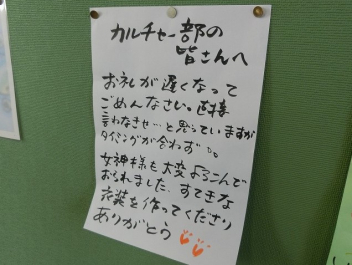 カルチャー部の
皆さんへ
お礼が遅くなって
ごめんなさい。直接
言わなきゃ…と思っていますが
タイミングが合わず
女神様も大変よろこんで
おられました。すてきな
衣装を作ってくださり
ありがとう